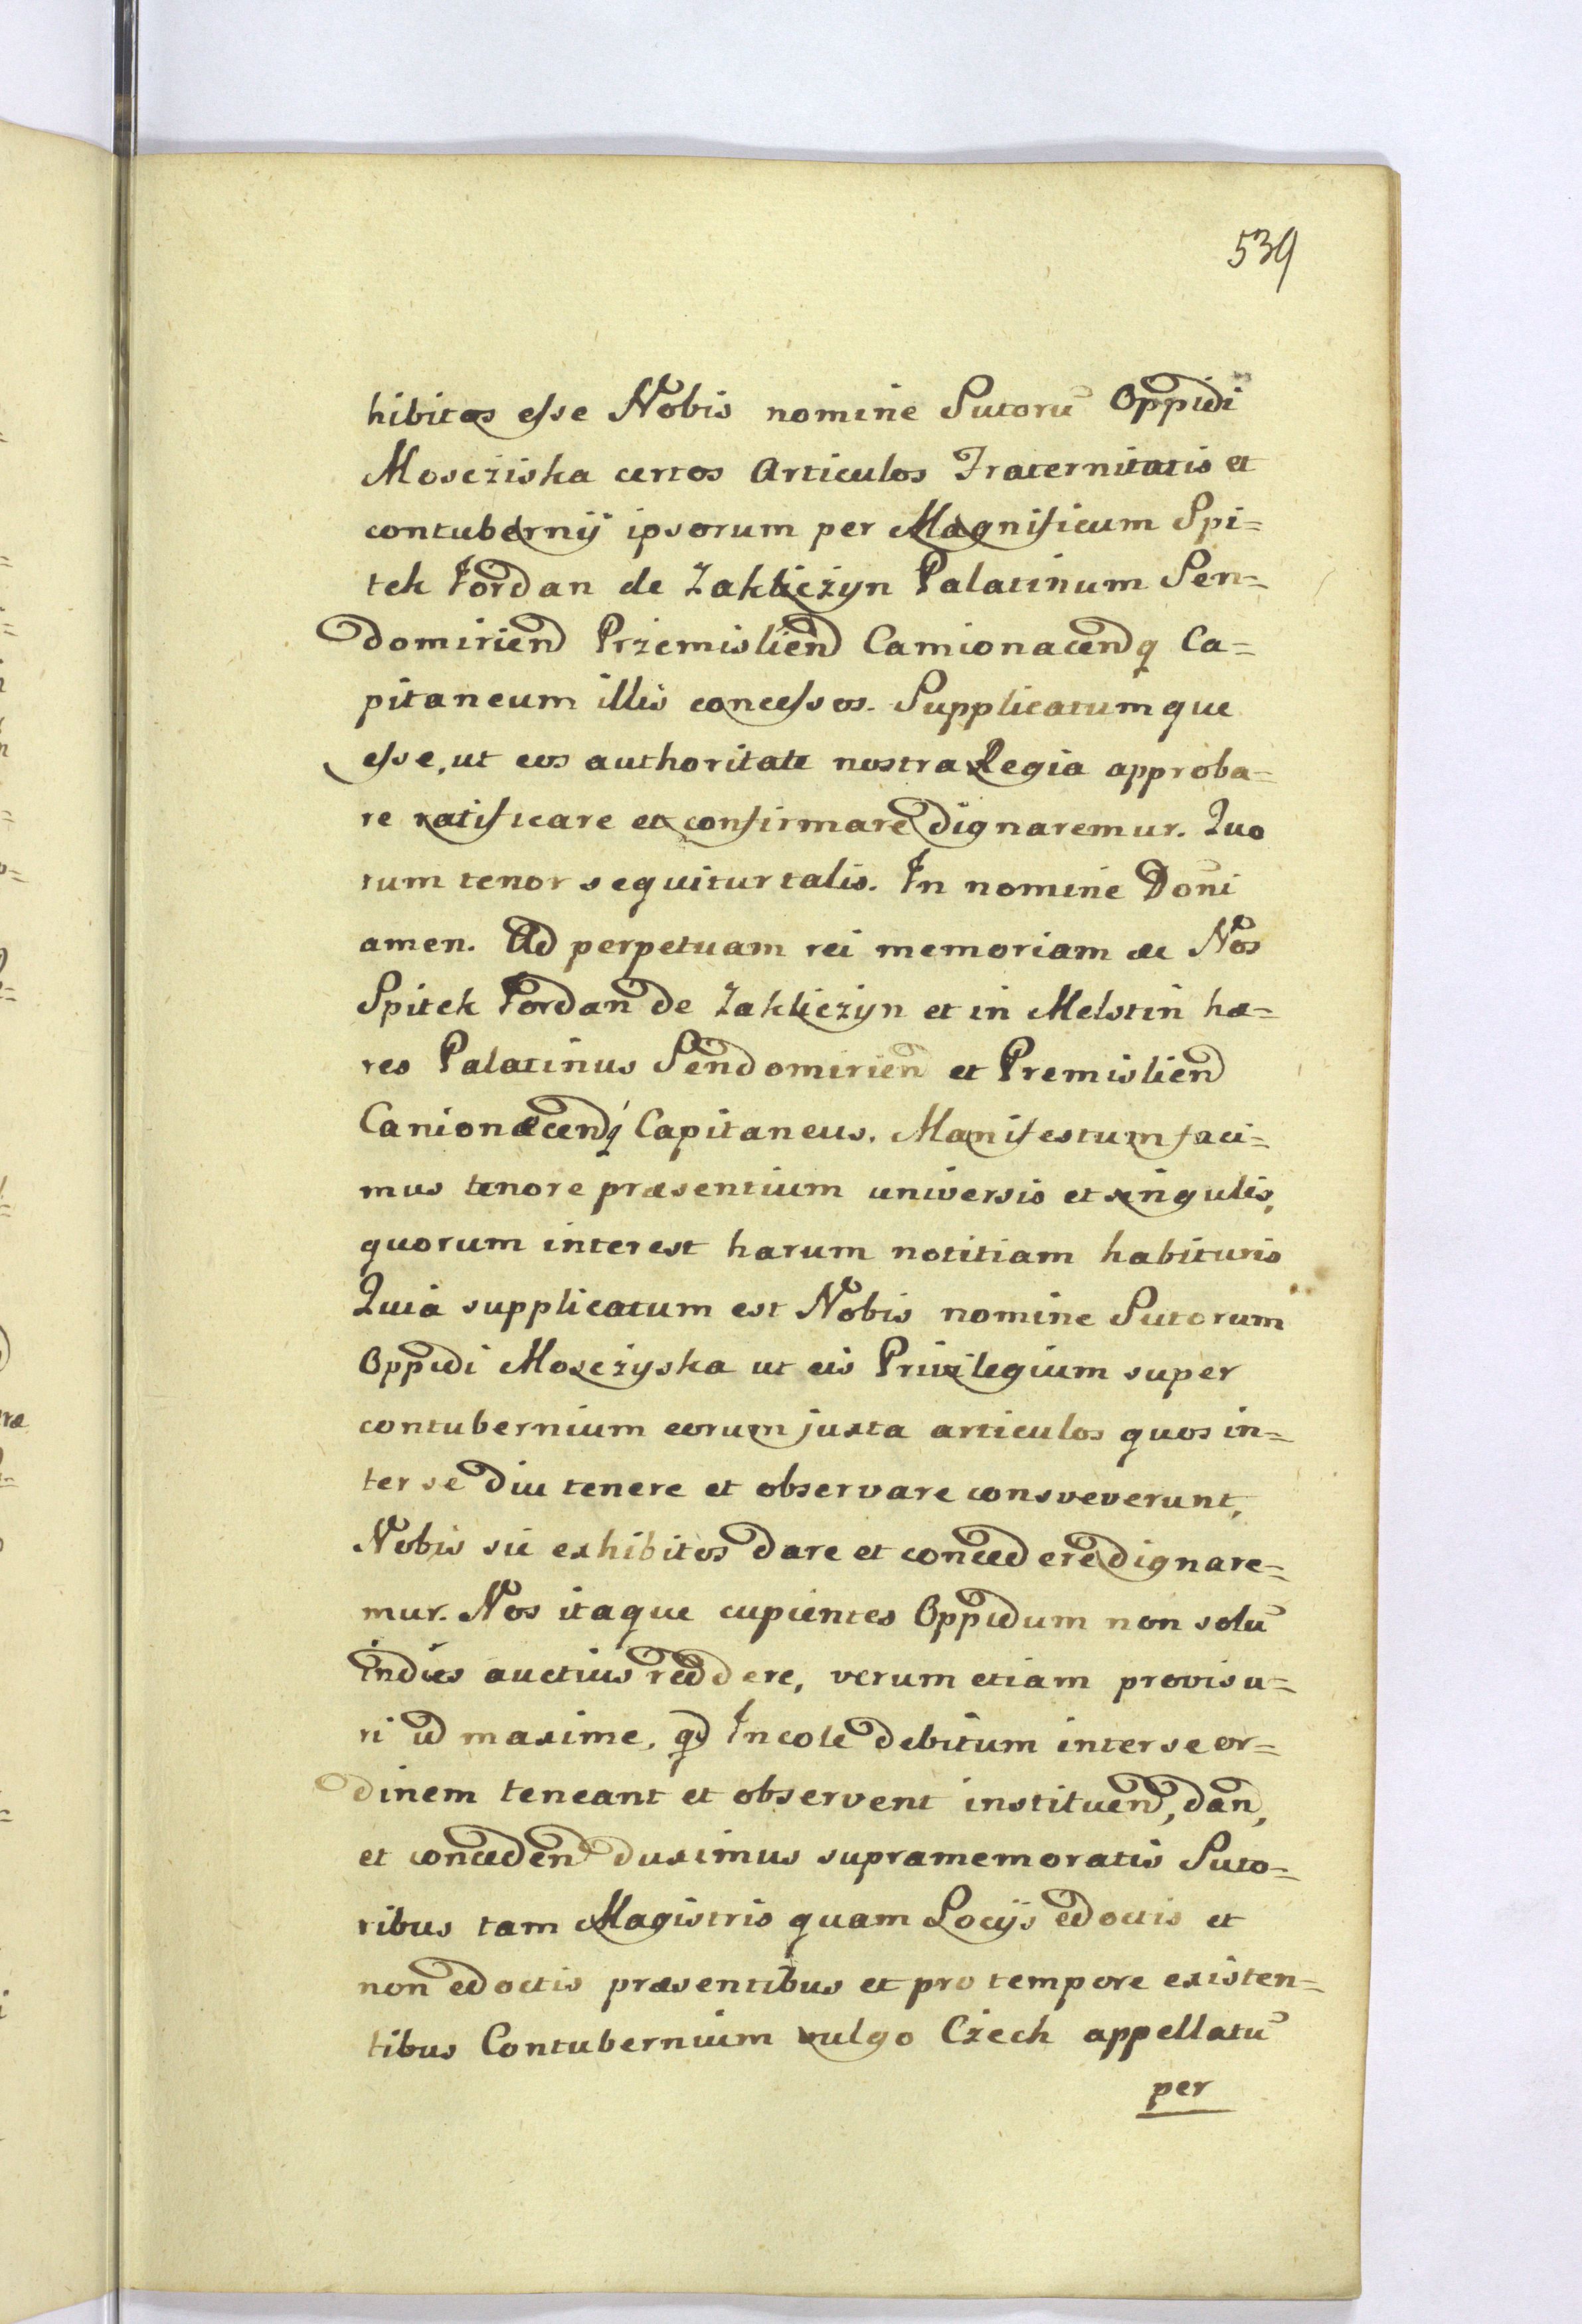 539
hibitos esse Nobis nomine Sutorū Oppidi
Mosciziska certos Articulos Fraternitatis et
contubernij ipsorum per Magnificum Spi=
tek Jordan de Zakliczyn Palatinum Sen=
domirien Przemislien Camionacenq Ca=
pitaneum illis concessos. Supplicatumque
esse, ut eos authoritate nostra Regia approba=
re ratificare et confirmare dignaremur. Quo
rum tenor sequitur talis. In nomine Domī
amen. Ad perpetuam rei memoriam ac Nos
Spitek Jordan de Zakliczyn et in Melstin hæ=
res Palatinus Sendomirien et Premislien
Canionacenq Capitaneus. Manifestum faci=
mus tenore præsentium universis et singulis,
quorum interest harum notitiam habituris
Quia supplicatum est Nobis nomine Sutorum
Oppidi Mosczyska ut eis Privilegium super
contubernium eorum juxta articulos quos in=
ter se diu tenere et observare consveverunt,
Nobis sic exhibitos dare et concedere dignare=
mur. Nos itaque cupientes Oppidum non solū
indies auctius reddere, verum etiam provisu=
ri id maxime, qd Incole debitum inter se or=
dinem teneant et observent instituen, dan,
et conceden duximus supramemoratis Suto=
ribus tam Magistris quam Socijs edoctis et
non edoctis præsentibus et pro tempore existen=
tibus Contubernium vulgo Czech appellatū
per